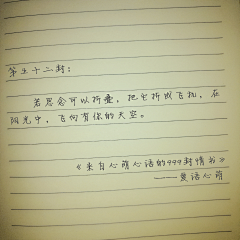 第五十二封：
若思念可以折叠，把它折成飞机，在
阳光中，飞向有你的天空。
《来自心萌心语的999封情书》
——莫语心萌